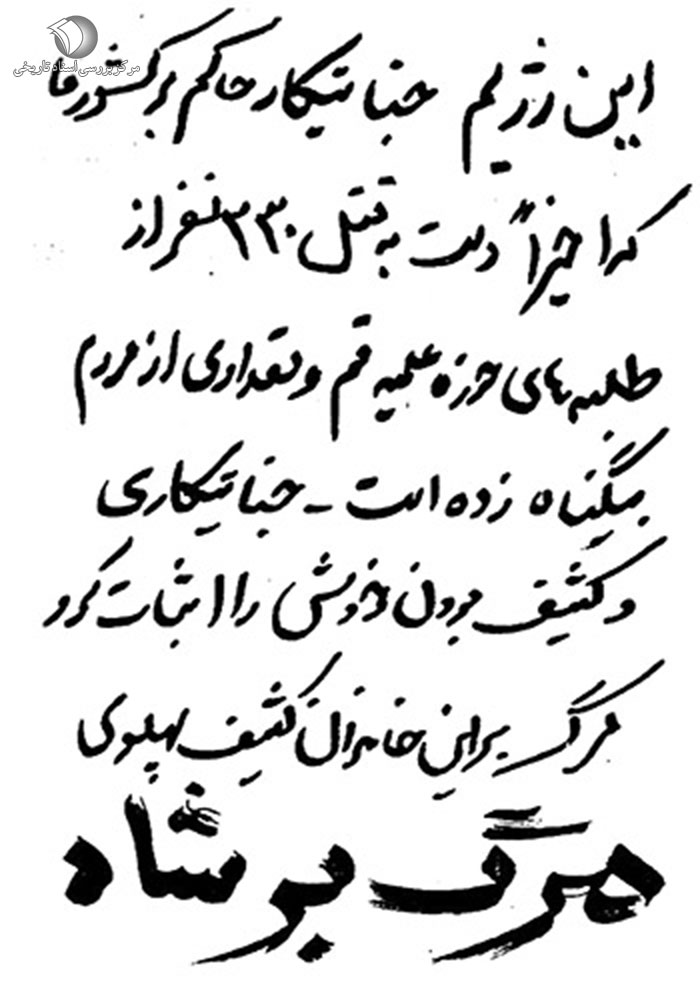 مرکز بررسی اسناد تاریخی
این رژیم جنایتکار حاکم بر کشور ما
که اخیراً دست به قتل ۲۳۰ نفر از
طلبه های حوزه علمیه قم و تعدادی از مردم
بیگناه زده است - جنایتکاری
و کثیف بودن خودش را اثبات کرد
مرگ بر این خاندان کثیف پهلوی
مرگ بر شاه